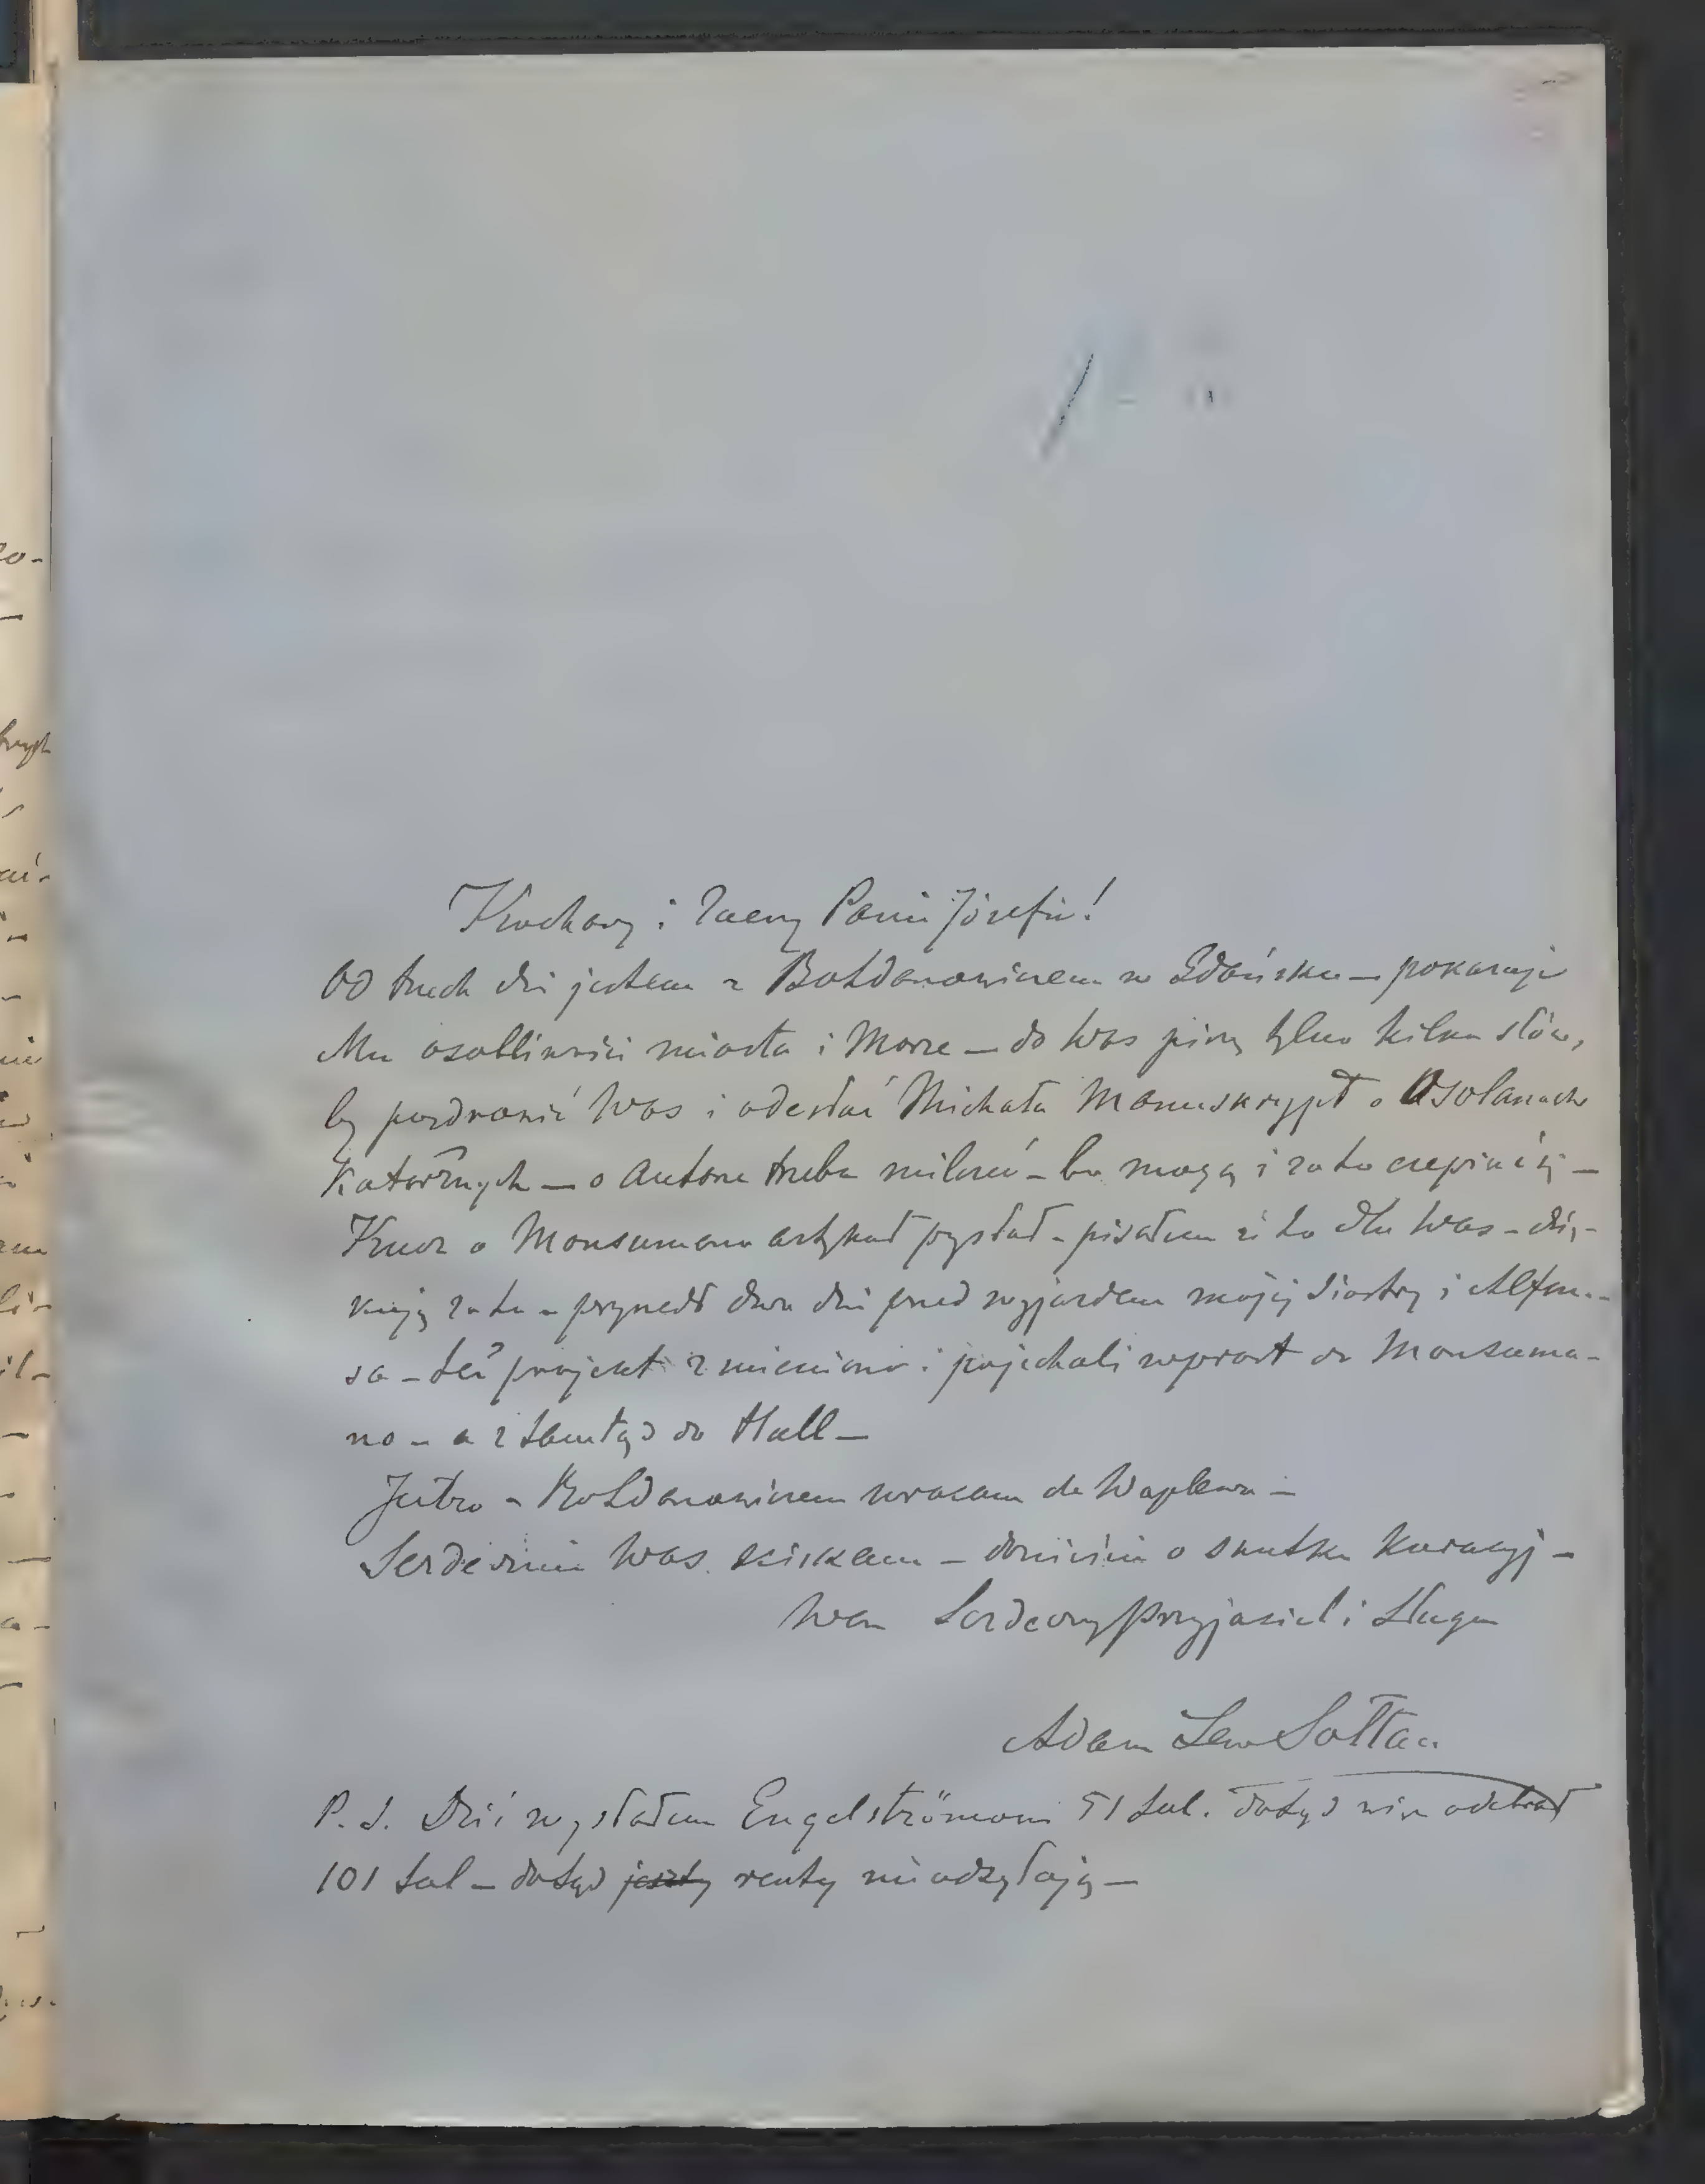 Kochany i Zacny Panie Józefie!
Od trzech dni jestem z Bohdanowiczem w Gdańsku — pokazuję
Mu osobliwości miasta i Morze — do Was piszę tylko kilka słów,
by pozdrowić Was i odesłać Michała Manuskrypt o
Katorżnych — o Autorze trzeba milczeć — bo mogą i za to czepiać się —
Kucz o Monsumano artykuł przysłał — pisałem że to dla Was — dzię-
kuję za to — przyszedł dwa dni przed wyjazdem mojej Siostry i Alfon-
sa — też projekt zmieniono i pojechali wprost do Monsuma-
no — a z tamtąd do Hall —
Jutro z Bohdanowiczem wracam do Waplewa —
Serdecznie Was ściskam — donieście o skutku Kuracyj —
Wam Serdeczny Przyjaciel i Sługa
Adam Lew Sołtan
P. S. Dziś wysłałem Engelströmowi 51 tal. dotąd więc odebrał
101 tal — dotąd renty nie odsyłają —